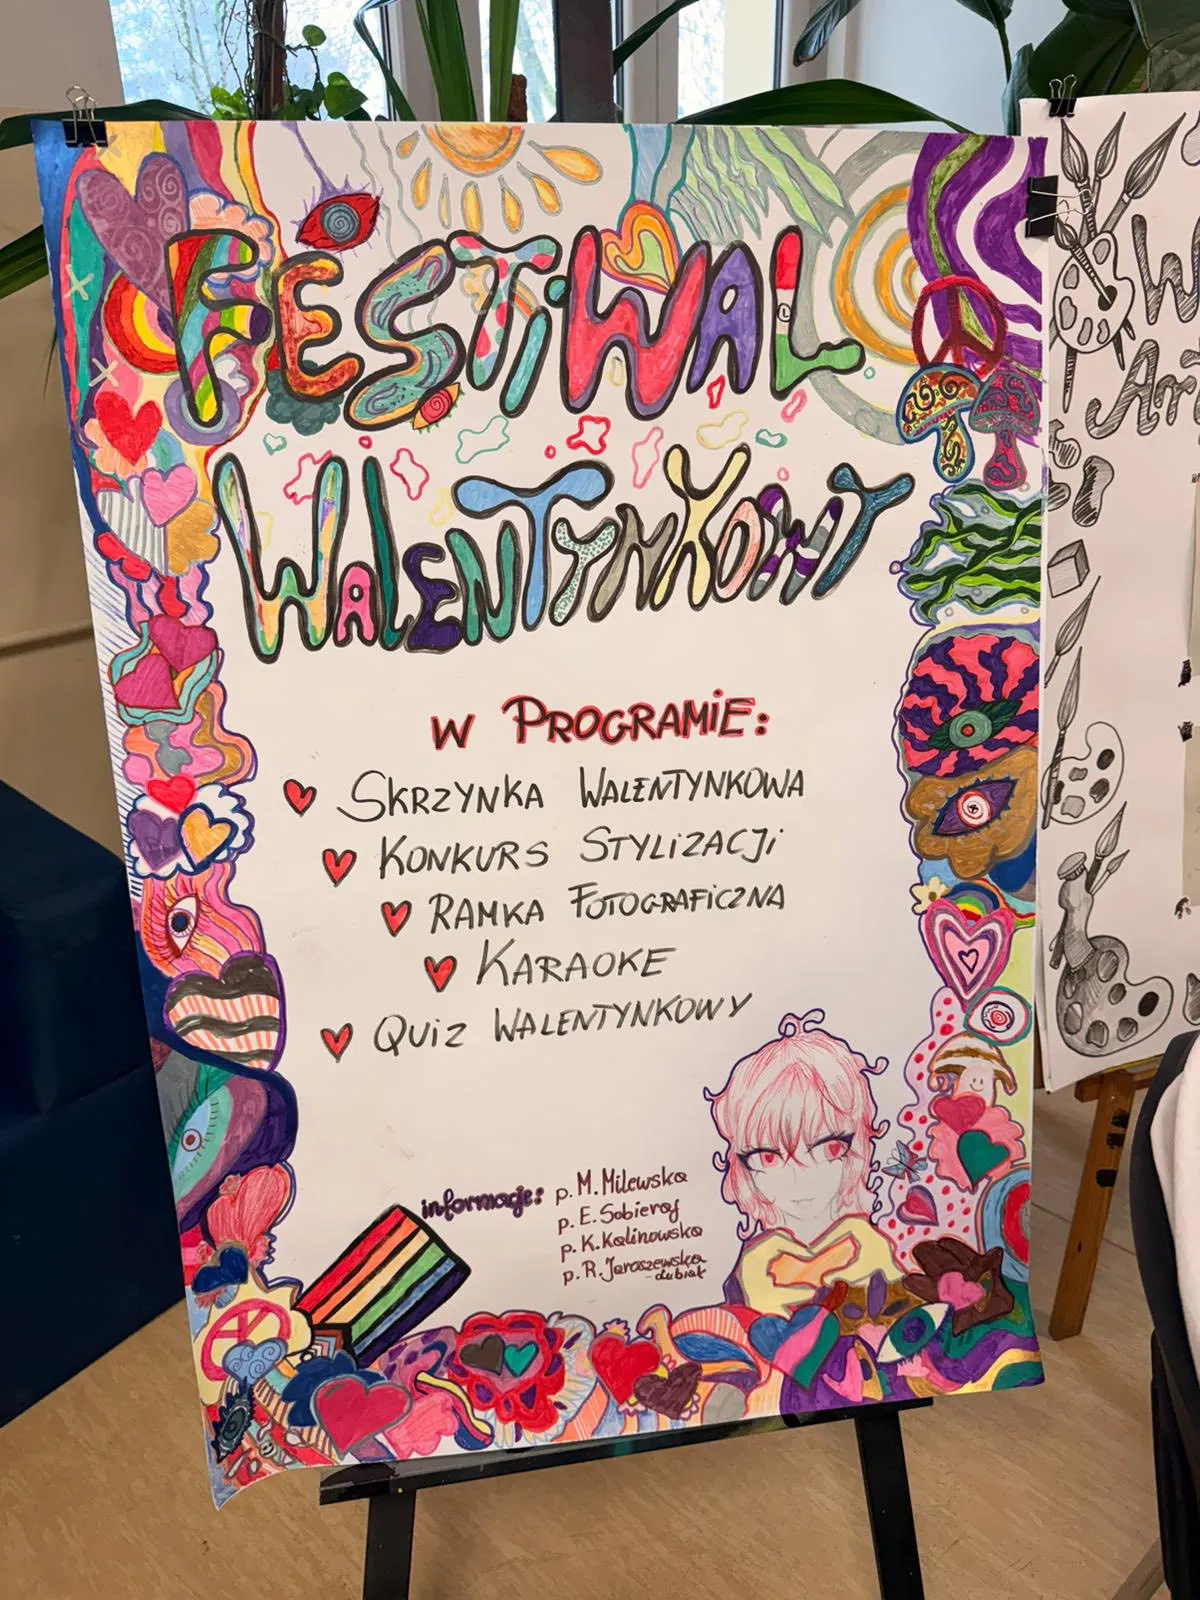 FESTIWAL
WALENTYNKOWY
W PROGRAMIE:
SKRZYNKA WALENTYNKOWA
KONKURS STYLIZACJI
RAMKA FOTOGRAFICZNA
KARAOKE
QUIZ WALENTYNKOWY
informacje: p. M. Milewska
p. E. Sobieraj
p. K. Kalinowska
p. R. Jaraszewska
-dubiak
W
Art